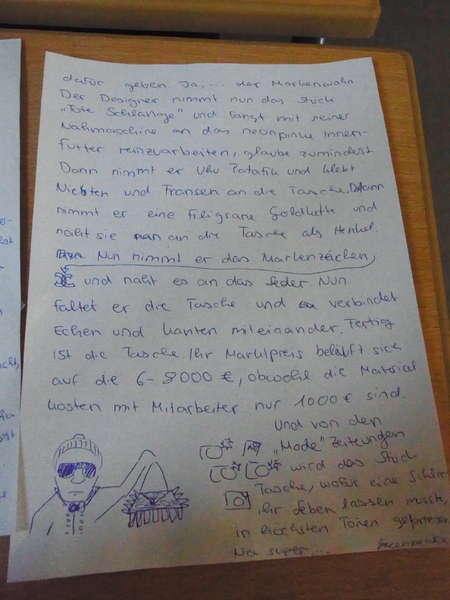 dafür geben. Ja, ... der Markenwahn
Der Designer nimmt nun das Stück
"Tote Schlange" und fängt mit seiner
Nähmaschine an das neonpinke Innen-
futter reinzuarbeiten, glaube zumindest.
Dann nimmt er Uhu Patafix und klebt
Nieten und Fransen an die Tasche. Dann
nimmt er eine filigrane Goldkette und
näht sie an die Tasche als Henkel.
Nun nimmt er das Markenzeichen,
und näht es an das Leder. Nun
faltet er die Tasche und verbindet
Ecken und Kanten miteinander. Fertig
ist die Tasche. Ihr Marktpreis beläuft sich
auf die 6-8000 €, obwohl die Material
kosten mit Mitarbeiter nur 1000 € sind.
und von den
"Mode" Zeitungen
wird das Stück
Tasche, wofür eine Schlange
ihr Leben lassen musste,
in höchsten Tönen
Na super, ...